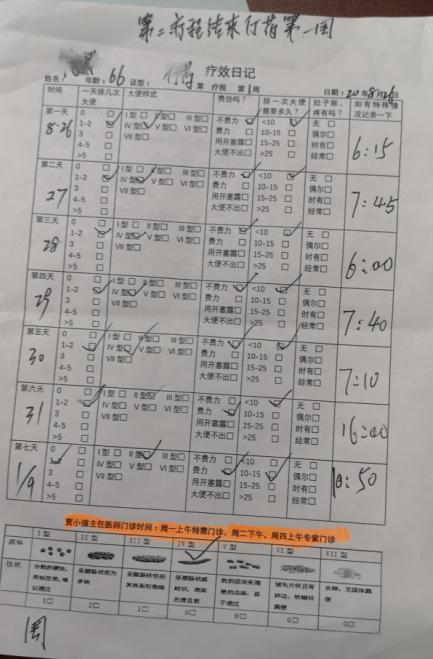 第二疗程结束行药第一周
疗效日记
姓名 年龄：66 证型： 行药 第 疗程 第1周 日期：20年8月26
时间 一天排几次大便 大便样式 费劲吗？ 排一次大便需要多久？ 肚子胀、疼有吗？ 如有特殊情况记录一下
第一天 0 □ I型□ II型□ III型□ 不费力 □ <10 □ 无 □
8·26 1-2 □ IV型□ V型□ VI型□ 费力 □ 10-15 □ 偶尔□ 6:15
3 □ VII型□ 用开塞露□ 15-25 □ 时有□
4-5 □ 大便不出□ >25 □ 经常□
>5 □
第二天 0 □ I型□ II型□ III型□ 不费力 □ <10 □ 无 □
27 1-2 □ IV型□ V型□ VI型□ 费力 □ 10-15 □ 偶尔□ 7:45
3 □ VII型□ 用开塞露□ 15-25 □ 时有□
4-5 □ 大便不出□ >25 □ 经常□
>5 □
第三天 0 □ I型□ II型□ III型□ 不费力 □ <10 □ 无 □
28 1-2 □ IV型□ V型□ VI型□ 费力 □ 10-15 □ 偶尔□ 6:00
3 □ VII型□ 用开塞露□ 15-25 □ 时有□
4-5 □ 大便不出□ >25 □ 经常□
>5 □
第四天 0 □ I型□ II型□ III型□ 不费力 □ <10 □ 无 □
29 1-2 □ IV型□ V型□ VI型□ 费力 □ 10-15 □ 偶尔□ 7:40
3 □ VII型□ 用开塞露□ 15-25 □ 时有□
4-5 □ 大便不出□ >25 □ 经常□
>5 □
第五天 0 □ I型□ II型□ III型□ 不费力 □ <10 □ 无 □
30 1-2 □ IV型□ V型□ VI型□ 费力 □ 10-15 □ 偶尔□ 7:10
3 □ VII型□ 用开塞露□ 15-25 □ 时有□
4-5 □ 大便不出□ >25 □ 经常□
>5 □
第六天 0 □ I型□ II型□ III型□ 不费力 □ <10 □ 无 □
31 1-2 □ IV型□ V型□ VI型□ 费力 □ 10-15 □ 偶尔□ 16:00
3 □ VII型□ 用开塞露□ 15-25 □ 时有□
4-5 □ 大便不出□ >25 □ 经常□
>5 □
第七天 0 □ I型□ II型□ III型□ 不费力 □ <10 □ 无 □
1/9 1-2 □ IV型□ V型□ VI型□ 费力 □ 10-15 □ 偶尔□ :50
3 □ VII型□ 用开塞露□ 15-25 □ 时有□
4-5 □ 大便不出□ >25 □ 经常□
>5 □
贾小强主任医师门诊时间：周一上午特需门诊、周二下午、周四上午专家门诊
I型 II型 III型 IV型 V型 VI型 VII型
图标
性状
3□ 2□ 1□ 0□ 0□ 0□ 0□
周